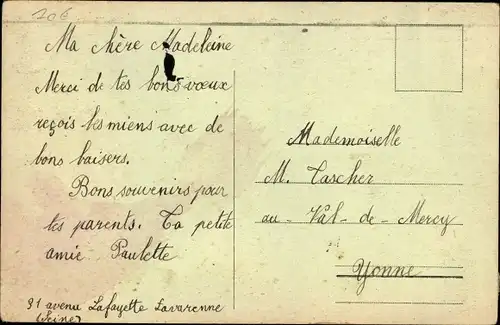 20€
Ma chère Madeleine
Merci de tes bons vœux
reçois les miens avec de
bons baisers.
Bons souvenirs pour
tes parents. Ta petite
amie Paulette
91 avenu Lafayette Lavarenne
(Seine)
Mademoiselle
M. Tascher
au - Val - de - Mercy
Yonne